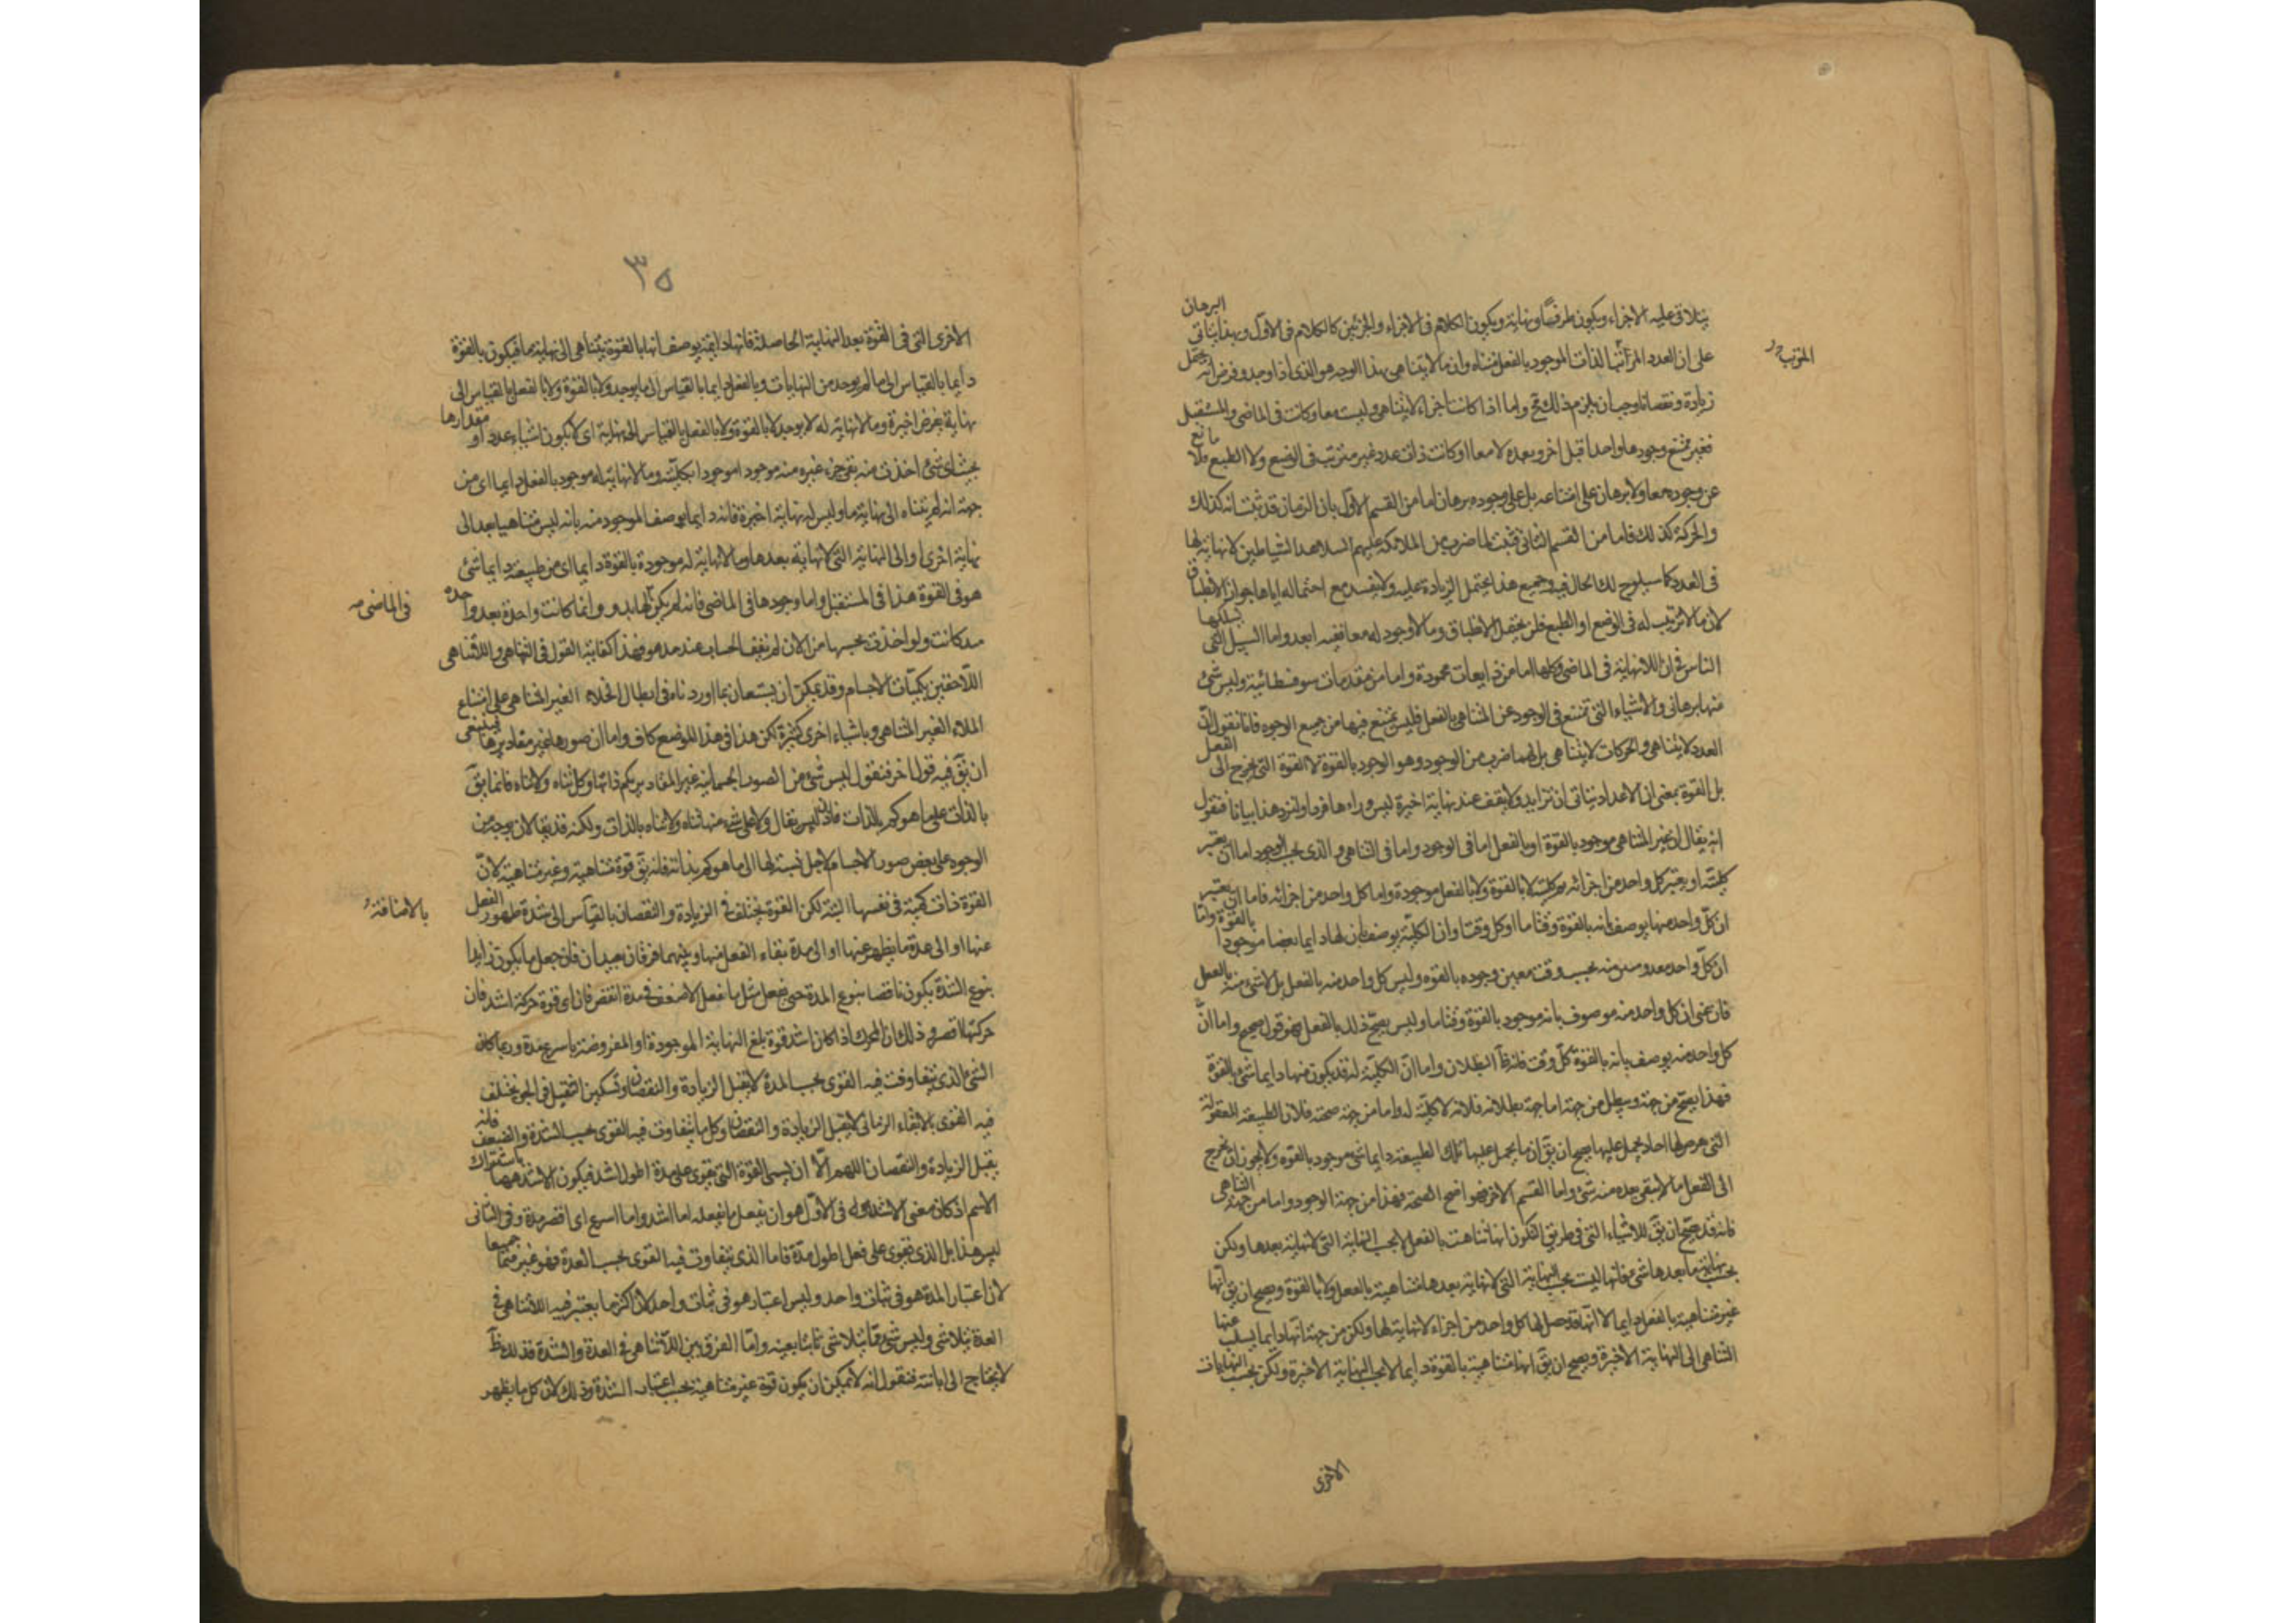 يتلاقى عليه الاجزاء ويكون طرفا ونهاية ويكون الكلام فى الاجزاء والجزئين كالكلام فى الاول وبهذا يتاتى البرهان
على ان العدد المترتب الذات الموجود بالفعل متناه وان ما لا يتناهى بهذا الوجه هو الذى اذا وجد وفرض انه يحتمل
زيادة ونقصانا وجب ان يلزم ذلك مح واما اذا كانت اجزاء لا يتناهى وليست معا وكانت فى الماضى والمستقبل
فغير ممتنع وجودها واحدا قبل اخر وبعده لا معا او كانت ذات عدد غير مترتب فى الوضع ولا الطبع فلا مانع
عن وجوده معا ولا برهان على امتناعه بل على وجوده برهان اما من القسم الاول بان الزمان قد ثبت انه كذلك
والحركة كذلك فاما من القسم الثانى فثبت لنا ضرب من الملائكة عليهم السلام والشياطين لا نهاية لها
فى العدد كما سيلوح لك الحال فيه وجميع هذا يحتمل الزيادة عليه ولا يفيد مع احتماله اياها جواز الانطباق
لان ما لا ترتيب له فى الوضع او الطبع فلن يحتمل الانطباق وما لا وجود له معا ففيه ابعد واما السبل التى يسلكها
الناس فى ان اللانهاية فى الماضى وكلها اما من ذايعات محمودة واما من مقدمات سوفسطائية وليس شئ
منها برهانى والاشياء التى تمتنع فى الوجود عن المتناهى بالفعل فليس يمتنع فيها من جميع الوجوه فانا نقول ان
العدد لا يتناهى والحركات لا يتناهى بل لهما ضرب من الوجود وهو الوجود بالقوة لا القوة التى يخرج الى الفعل
بل القوة بمعنى ان الاعداد يتاتى ان تزايد ولا يقف عند نهاية اخيرة ليس وراءها فرد ولنزد هذا بيانا فنقول
انه يقال ان غير المتناهى موجود بالقوة او بالفعل اما فى الوجود واما فى التناهى والذى بحسب الوجود اما ان يعتبر
كليته او يعتبر كل واحد من اجزائه وكليته لا بالقوة ولا بالفعل موجودة واما كل واحد من اجزائه فاما ان يعتبر
ان كل واحد منها يوصف بانه بالقوة وقتا ما او كل وقت وان الكلية يوصف بان لها دايما بعضا موجودا بالقوة واما
ان كل واحد بحسب وقت معين وجوده بالقوه وليس كل واحد منه بالفعل بل لا شئ منه بالفعل
فان عنى ان كل واحد منه موصوف بانه موجود بالقوة وقتا ما وليس يصح ذلك بالفعل فهو قول صحيح واما ان
كل واحد منه يوصف بانه بالقوة كل وقت فانه ظ البطلان واما ان الكلية له قد يكون منها دايما شئ بالقوة
فهذا يصح من جهة ويبطل من جهة اما جهة بطلانه فلانه لا كلية له واما من جهة صحته فلان الطبيعة المعقولة
التى لها احاد يحمل عليها يصح ان يق ان ما يحمل عليها تلك الطبيعة دايما شئ موجود بالقوه ولا يجوز ان يخرج
الى الفعل ما لا يبقى بعده منه شئ واما القسم الاخر فهو اضح الصحة فهذا من جهة الوجود واما من جهة التناهى
فانه قد صح ان يق للاشياء التى فى طريق التكون انها تناهت بالفعل لا بحسب النهاية التى لا نهاية بعدها ولكن
بحسب نهاية ما بعدها شئ فانها ليست بحسب النهاية التى لا نهاية بعدها متناهية بالفعل ولا بالقوة ويصح ان يق انها
غير متناهية بالفعل دايما لا انها قد حصل لها كل واحد من اجزاء لا نهاية لها ولكن من جهة انها دايما يسلب عنها
التناهى الى النهاية الاخيرة ويصح ان يق انها متناهية بالقوة دايما لا بحسب النهاية الاخيرة ولكن بحسب النهايات
الاخرى
المترتب
٣٥
الاخرى التى فى القوة بعد النهاية الحاصلة فانها دايمة يوصف انها بالقوة يتناهى الى نهاية ما فيكون بالقوة
دايما بالقياس الى ما لم يوجد من النهايات وبالفعل دايما بالقياس الى ما يوجد ولا بالقوة ولا بالفعل بالقياس الى
نهاية يفرض اخيرة وما لا نهاية له لا يوجد لا بالقوة ولا بالفعل بالقياس الى نهاية اى لا يكون اشياء عدد او مقدارها
بحيث اى شئ اخذت منه بقى جزء غيره منه موجودا موجودا بكليته وما لا نهاية له موجود بالفعل دايما اى من
جهة انه لم يتناه الى نهاية ما وليس له نهاية اخيرة فانه دايما يوصف الموجود منه بانه ليس متناهيا بعد الى
نهاية اخرى او الى النهاية التى لا نهاية بعدها وما لا نهاية له موجودة بالقوة دايما اى من طبيعته دايما شئ
هو فى القوة هذا فى المستقبل واما وجودها فى الماضى فانه لم يكن لها بدو وانما كانت واحدة بعد واحده
فى الماضى
قد كانت ولو اخذت بحسبها من الان لم يقف الحساب عند حد فهذا كفاية القول فى التناهى واللاتناهى
اللاحقين بكميات الاجسام وقد يمكن ان يستعان بما اوردناه فى ابطال الخلاء الغير المتناهى على امتناع
الملاء الغير المتناهى وباشياء اخرى كثيرة لكن هذا فى هذا الموضع كاف واما ان صورها غير مقاديرها فينبغى
ان يق فيه قولا اخر فنقول ليس شئ من الصور الجسمانية غير المقادير بكم ذاتها وكل تناه ولا تناه فانما يق
بالذات على ما هو كم بالذات فاذن ليس يقال ولا على شئ منها تناه ولا تناه بالذات ولكنه قد يقال لان بوجه من
الوجود على بعض صور الاجسام لاجل نسبة لها الى ما هو كم بذاته فانه يق قوة متناهية وغير متناهية لان
القوة ذات كمية فى نفسها البتة لكن القوة يختلف فى الزيادة والنقصان بالقياس الى شدة ظهور الفعل
بالاضافة
عنها او الى عدة ما يظهر عنها او الى مدة بقاء الفعل منها وبينهما فرقان بعيدان فان جعل ما يكون زايدا
بنوع الشدة يكون ناقصا بنوع المدة حتى يفعل مثل ما يفعل الاضعف فى مدة انقص فان اى قوة حركة اشد فان
حركتها اقصر وذلك ان المحرك اذا كان اشد قوة بلغ النهاية الموجودة او المفروضة باسرع مدة وربما كان
الشئ الذى يتفاوت فيه القوى بحسب المدة لا يقبل الزيادة والنقصان وتسكين الثقيل فى الجو يختلف
فيه القوى بالابقاء الزمانى لا يقبل الزيادة والنقصان وكل ما يتفاوت فيه القوى بحسب الشدة والضعف فانه
يقبل الزيادة والنقصان اللهم الا ان يسمى القوة التى يقوى على مدة اطول اشد فيكون الاشد ههنا باشتراك
الاسم اذ كان معنى الاشد فى الاول هو ان يفعل ما يفعله اما اشد واما اسرع اى اقصر مدة وفى الثانى
ليس هذا بل الذى يقوى على فعل اطول مدة فاما الذى يتفاوت فيه القوى بحسب العدة فهو غيرهما جميعا
لان اعتبار المدة هو فى ثبات واحد وليس اعتبار هو فى ثبات واحد لان اكثر ما يعتبر فيه اللاتناهى فى
العدة يتلاشى وليس شئ مما يتلاشى ثابتا بعينه واما الفرق بين اللاتناهى فى العدة والشدة فذلك ظ
لا يحتاج الى ابانته فنقول انه لا يمكن ان يكون قوة غير متناهية بحسب اعتبار الشدة وذلك لان كل ما يظهر